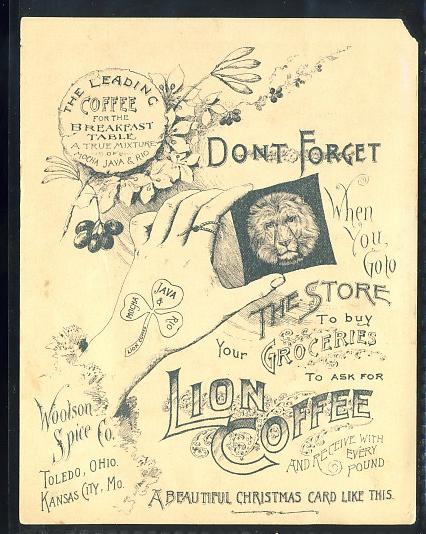 THE LEADING
COFFEE
FOR THE
BREAKFAST
TABLE
A TRUE MIXTURE
OF
MOCHA JAVA & RIO
DON'T FORGET
When
You
Go to
THE STORE
To buy
Your GROCERIES
To ASK FOR
LION
COFFEE
AND RECEIVE WITH
EVERY
POUND
A BEAUTIFUL CHRISTMAS CARD LIKE THIS.
MOCHA
JAVA
&
RIO
LION COFFEE
Woolson
Spice Co.
TOLEDO, OHIO.
KANSAS CITY, MO.